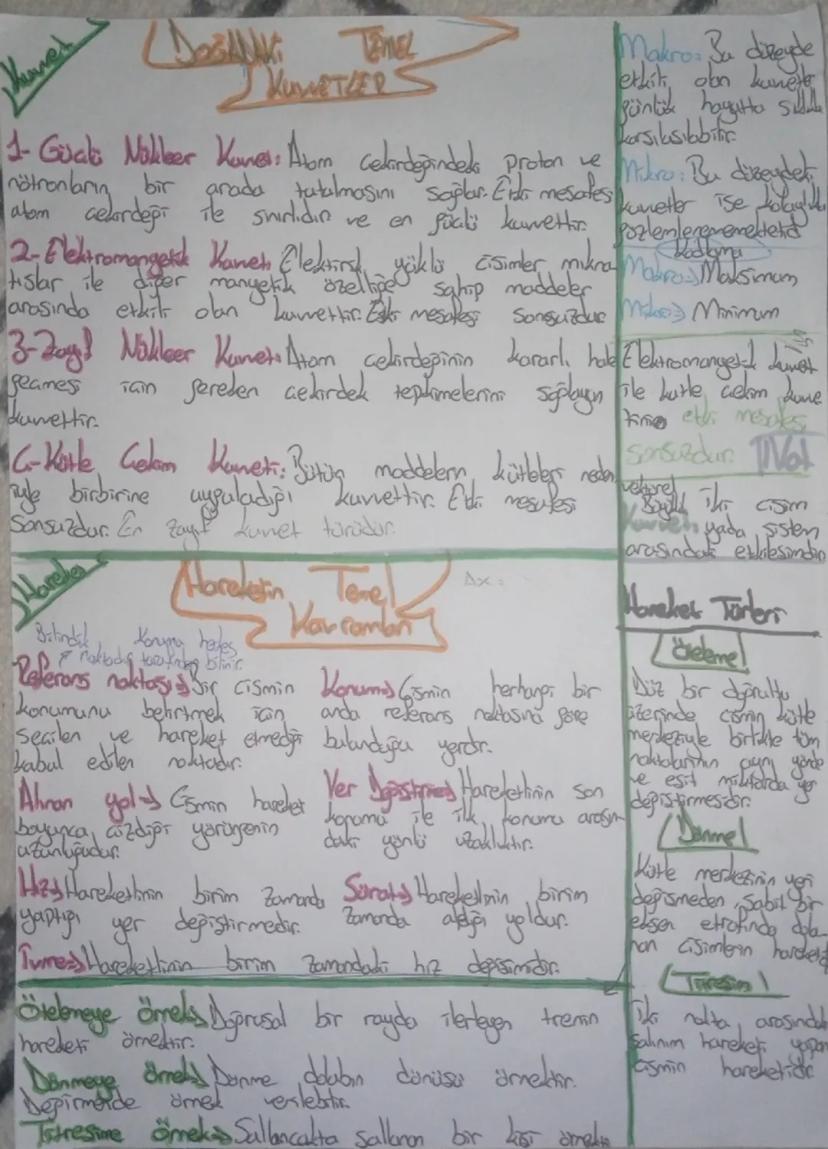 Kuvvet
DOĞADAKİ TEMEL
KUVVETLER
1- Güçlü Nükleer Kuvvet: Atom çekirdeğindeki proton ve
nötronların bir arada tutulmasını sağlar. Etki mesafesi
atom çekirdeği ile sınırlıdır ve en güçlü kuvvettir.
2- Elektromanyetik Kuvvet: Elektirik yüklü cisimler mıkna
tıslar ile diğer manyetik özelliğe sahip maddeler
arasında etkili olan kuvvettir. Etki mesafesi sonsuzdur
3- Zayıf Nükleer Kuvvet: Atom çekirdeğinin kararlı hale
geçmesi için gereken çekirdek tepkimelerini sağlayan
kuvvettir.
Kütle Çekim Kuvveti: Bütün maddelerin kütleleri neden
iyle birbirine uyguladığı kuvvettir. Etki mesafesi
sonsuzdur. En zayıf kuvvet türüdür.
Makro: Bu düzeyde
etkili olan kuvvetler
günlük hayatta sıklıkla
karşılaşılabilir.
Mikro: Bu düzeydeki
kuvvetler ise kolaylıkla
gözlemlenememektedir
kodlama
Makro → Maksimum
Mikro → Minimum
Elektromanyetik kuvvet
ile kütle çekim kuvve
tinin etki mesafesi
sonsuzdur. Not
vektörel
Kuvvet: iki cisim
yada sistem
arasındaki etkileşimdir
Hareket
Hareketin Temel
Kavramları
Δx =
Bilindik Konumu herkes
noktadır tarafından bilinir.
Referans noktası → Bir cismin
konumunu belirtmek için
seçilen ve hareket etmediği
kabul edilen noktadır.
Konum → Cismin herhangi bir
anda referans noktasına göre
bulunduğu yerdir.
Alınan yol → Cismin hareket
boyunca çizdiği yörüngenin
uzunluğudur.
Yer Değiştirme → Hareketlinin son
konumu ile ilk konumu arasın
daki yönlü uzaklıktır.
Hız → Hareketlinin birim zamanda
yaptığı yer değiştirmedir.
Sürat → Hareketlinin birim
zamanda aldığı yoldur.
İvme → Hareketlinin birim zamandaki hız değişimidir.
Hareket Türleri
Öteleme
Düz bir doğrultu
üzerinde cismin kütle
merkeziyle birlikte tüm
noktalarının aynı yönde
ve eşit miktarda yer
değiştirmesidir.
Dönme
Kütle merkezinin yeri
değişmeden, sabit bir
eksen etrafında dola
nan cisimlerin hareketi
Titreşim
İki nokta arasında
salınım hareketi yapan
cismin hareketidir.
Ötelemeye örnek → Doğrusal bir rayda ilerleyen trenin
hareketi örnektir.
Dönmeye örnek → Dönme dolabın dönüşü örnektir.
Değirmende örnek verilebilir.
Titreşime örnek → Salıncakta sallanan bir kişi örnektir